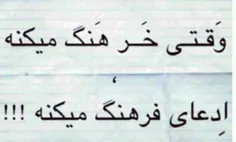 وَقتی خَـر هَنگ میکنه
،
اِدعای فرهنگ میکنه !!!